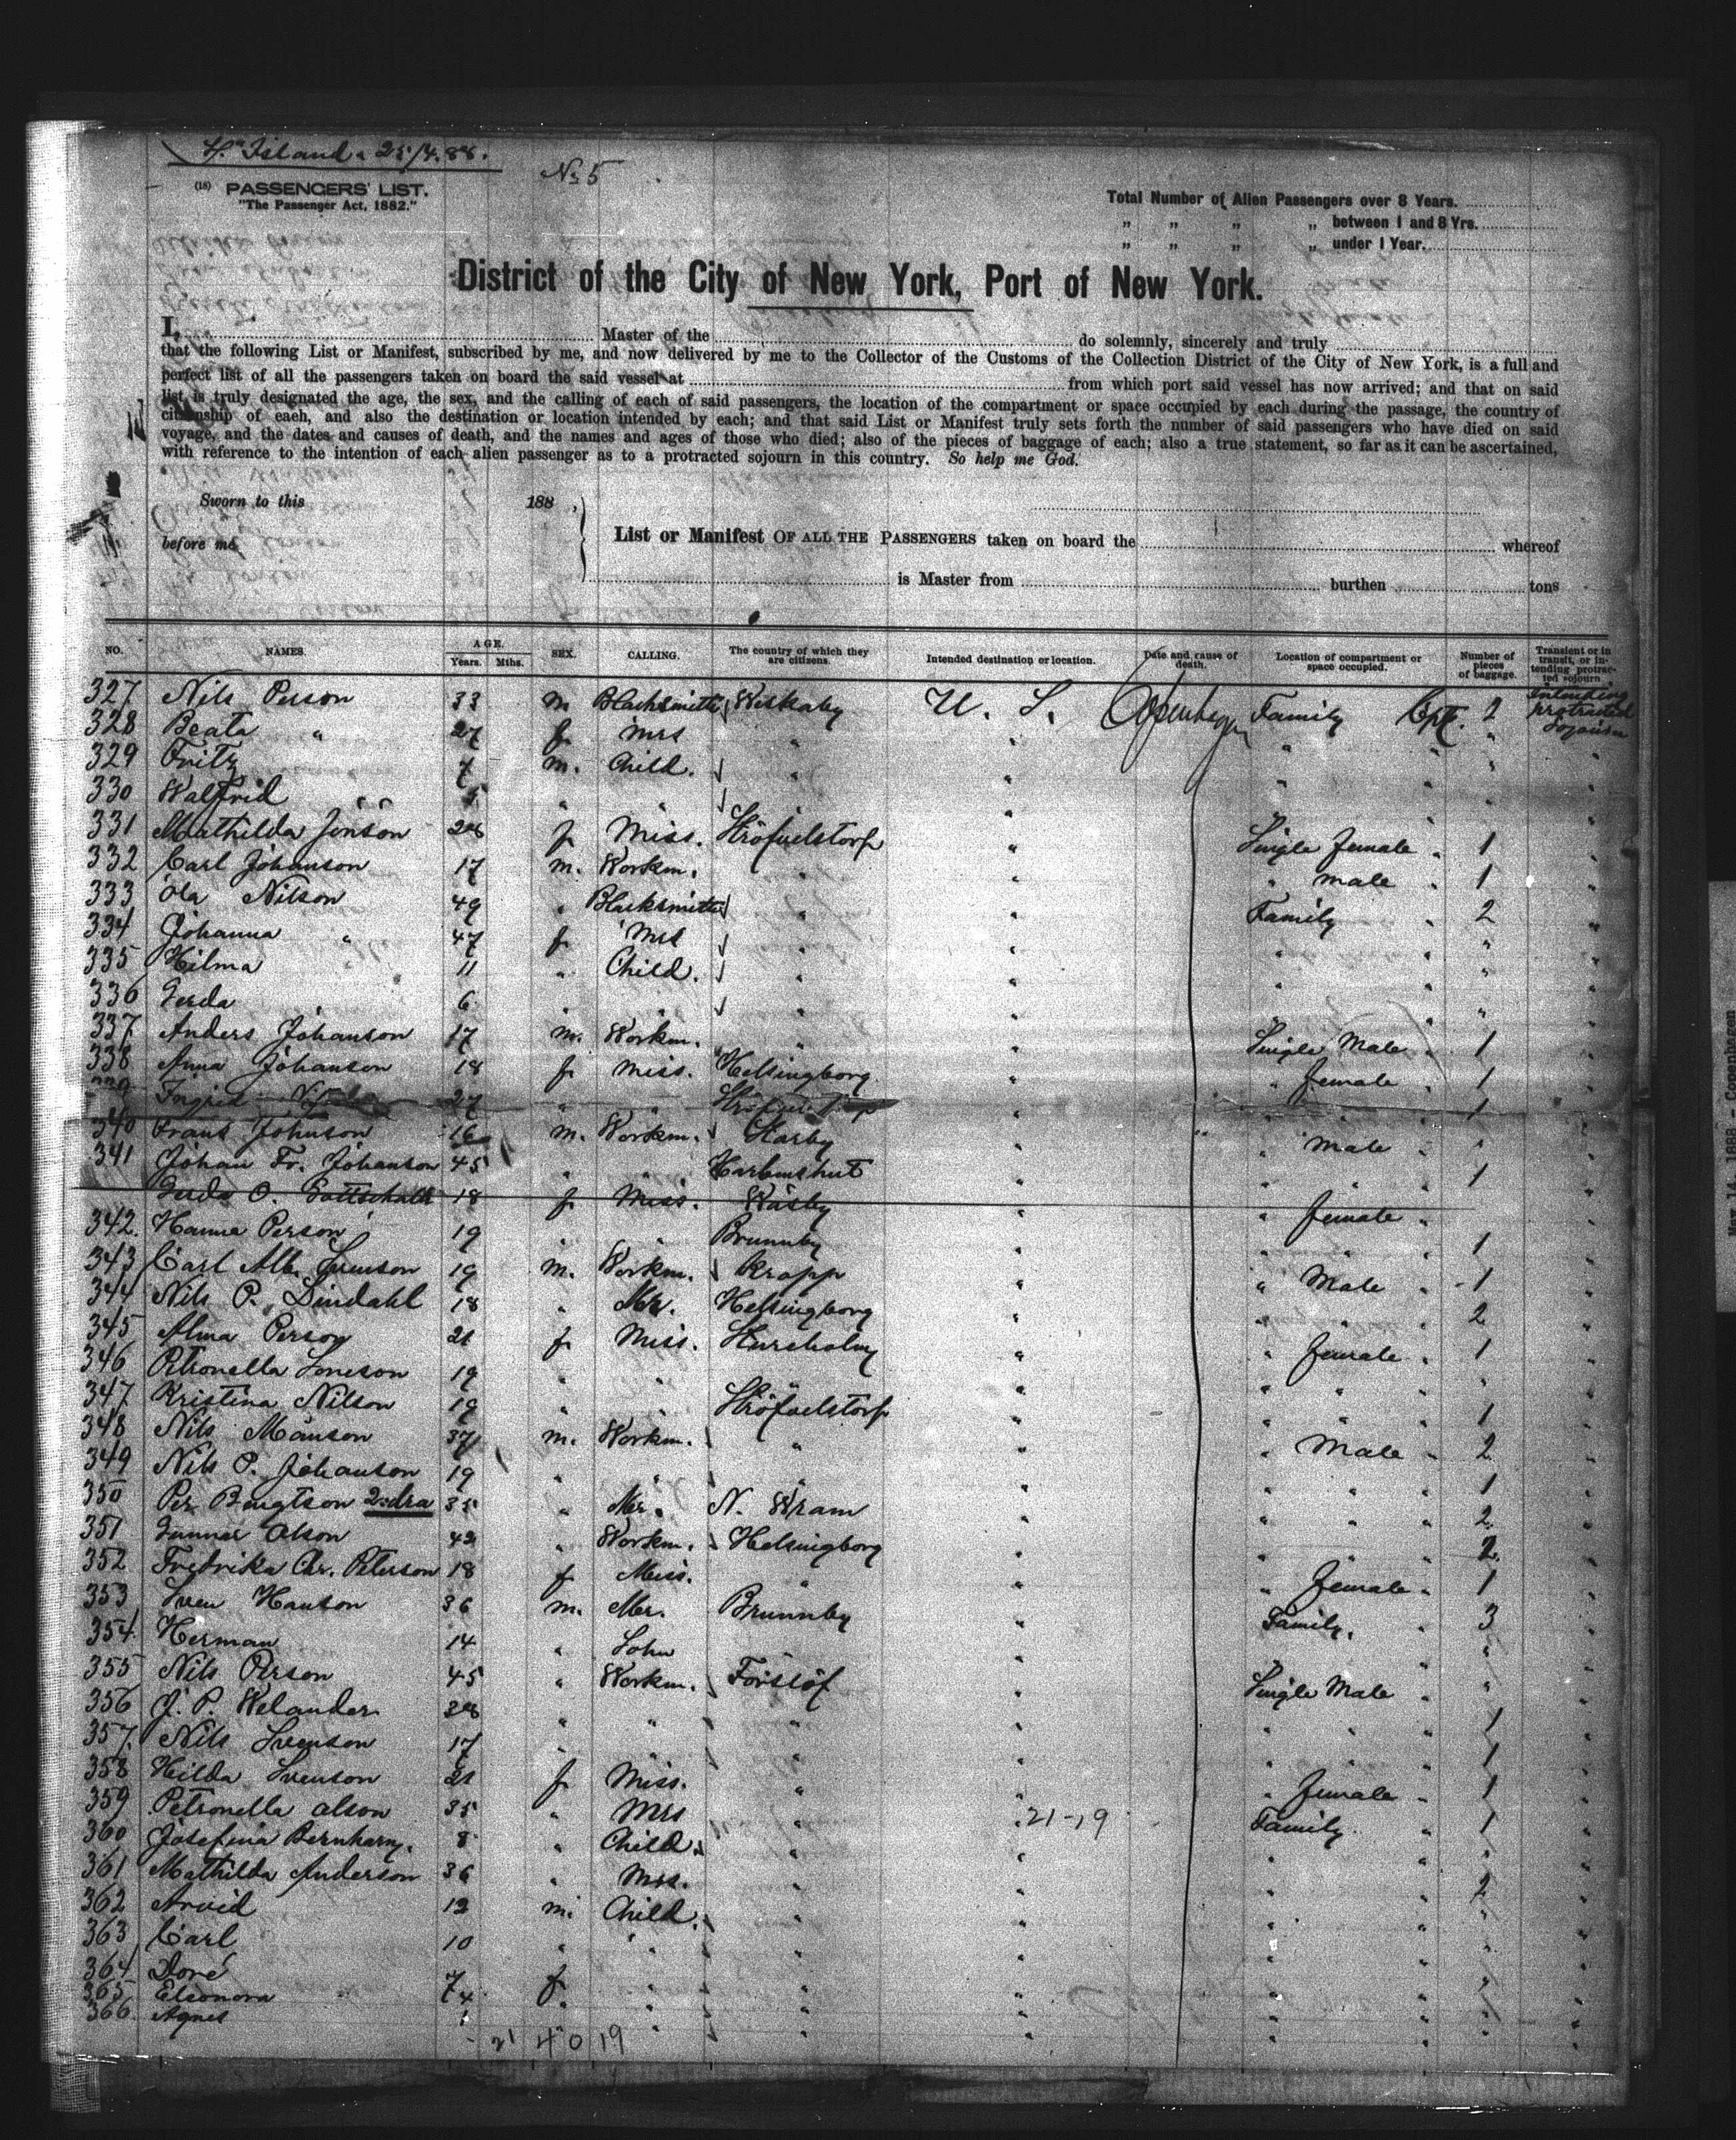 "Island" 25/4.88.
No 5
(18) PASSENGERS' LIST.
"The Passenger Act, 1882."
Total Number of Alien Passengers over 8 Years.
„ „ „ „ between 1 and 8 Yrs.
„ „ „ „ under 1 Year.
District of the City of New York, Port of New York.
I, Master of the do solemnly, sincerely and truly
that the following List or Manifest, subscribed by me, and now delivered by me to the Collector of the Customs of the Collection District of the City of New York, is a full and
perfect list of all the passengers taken on board the said vessel at from which port said vessel has now arrived; and that on said
list is truly designated the age, the sex, and the calling of each of said passengers, the location of the compartment or space occupied by each during the passage, the country of
citizenship of each, and also the destination or location intended by each; and that said List or Manifest truly sets forth the number of said passengers who have died on said
voyage, and the dates and causes of death, and the names and ages of those who died; also of the pieces of baggage of each; also a true statement, so far as it can be ascertained,
with reference to the intention of each alien passenger as to a protracted sojourn in this country. So help me God.
Sworn to this 188
before me
List or Manifest OF ALL THE PASSENGERS taken on board the whereof
is Master from burthen tons
NO. NAMES. AGE. Years. Mths. SEX. CALLING. The country of which they are citizens. Intended destination or location. Date and cause of death. Location of compartment or space occupied. Number of pieces of baggage. Transient or in transit, or intending protracted sojourn
327 Nils Person 33 m Blacksmith Wiskaby U. S. Copenhagen Family Cpt. 2 Intending protracted Sojourn
328 Beata " 27 f Mrs " " " " " "
329 Fritz 7 m. Child. " " " " " "
330 Walfrid 5 " " " " " " " "
331 Mathilda Jönson 28 f Miss. Ströfvelstorp " Single female " 1 "
332 Carl Johanson 17 m. Workm. " " " male " 1 "
333 Ola Nilson 49 " Blacksmith " " Family " 2 "
334 Johanna " 47 f Mrs " " " " " "
335 Hilma 11 " Child. " " " " " "
336 Gerda 6 " " " " " " " "
337 Anders Johanson 17 m. Workm. " " Single Male " 1 "
338 Anna Johanson 18 f Miss. Helsingborg " " female " 1 "
339 Ingrid 27 " " " " " " 1 "
340 Frans Johnson 16 m. Workm. Starby " " male " " "
341 Johan Fr. Johanson 45 " " " " " " 1 "
Gerda O. Gottschalk 18 f Miss. Wäsby " " female " "
342. Hanna Person 19 " " Brunnby " " " " 1 "
343 Carl Alb. Svenson 19 m. Workm. Kropp " " Male " 1 "
344 Nils P. Lindahl 18 " Mr. Helsingborg " " " " 2 "
345 Alma Person 21 f Miss. " " female " 1 "
346 Petronella 19 " " " " " " " " "
347 Kristina Nilson 19 " " Ströfvelstorp " " " " 1 "
348 Nils Månson 37 m. Workm. " " " Male " 2 "
349 Nils P. Johanson 19 " " " " " " " 1 "
350 Per Bengtson 2:dra 35 " Mr. N. Wram " " " " 2 "
351 Gunnar Olson 42 " Workm. Helsingborg " " " " 2. "
352 Fredrika Chr. Peterson 18 f Miss. " " " female " 1 "
353 Sven Hanson 36 m. Mr. Brunnby " Family. " 3 "
354. Herman 14 " Sohn " " " "
355 Nils Person 45 " Workm. Förslöf " Single Male " " "
356 J. P. Welander 28 " " " " " " " 1 "
357. Nils Svenson 17 " " " " " " " 1 "
358 Hilda Svenson 21 f Miss. " " " female " 1 "
359 Petronella Olson 35 " Mrs " " 21-19 Family " 1 "
360 Josefina 8 " Child. " " " " " "
361 Mathilda Anderson 36 " Mrs. " " " " 2 "
362 Arvid 12 m. Child. " " " " " "
363 Carl 10 " " " " " " " "
364 Doré 7 f. " " " " " " "
365 Eleonora 4 " " " " " " "
366. Agnes 1 " " " " " " "
21 40 19
May 14, 1888 - Copenhagen